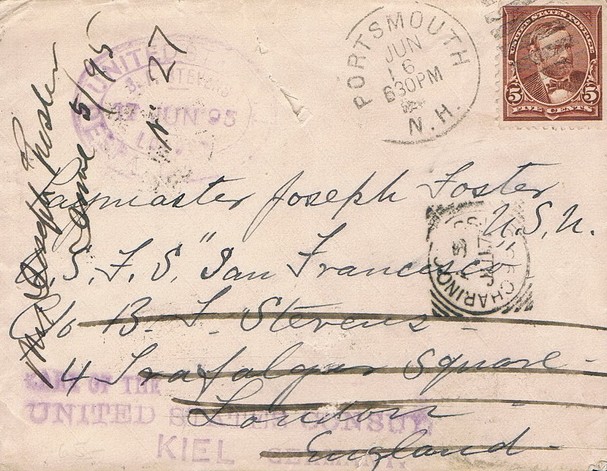 Mrs Joseph Foster
June 5/95
No 27
UNITED
17 JUN 95
PORTSMOUTH
JUN
6
630PM
N.H.
UNITED STATES POSTAGE
5 5
FIVE CENTS
Paymaster Joseph Foster
U.S.N.
U.S.F.S. "San Francisco"
CHARING
JU 17
95
c/o B. F. Stevens
4 Trafalgar Square
London
England
CARE OF THE
UNITED STATES CONSUL
KIEL GERMANY